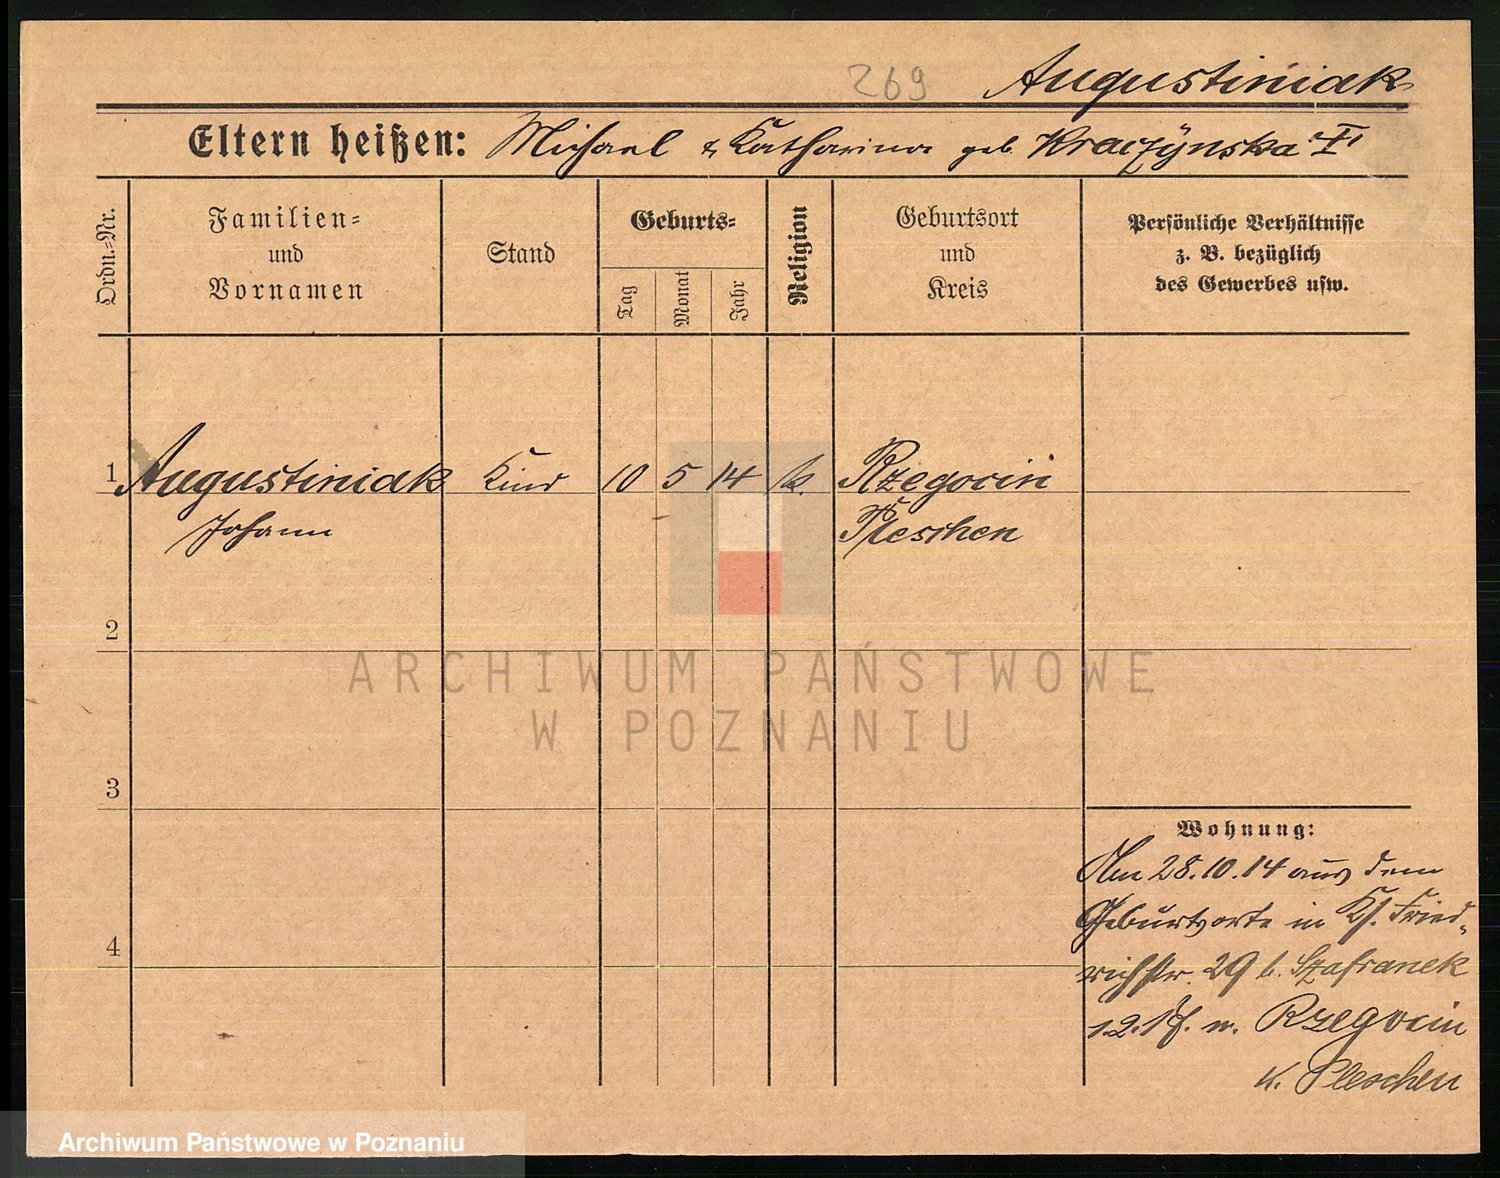 269 Augustiniak
Eltern heißen: Michael & Katharina geb. Kraczÿnska "I"
Ordn.-Nr.
Familien-
und
Vornamen
Stand
Geburts-
Tag
Monat
Jahr
Religion
Geburtsort
und
Kreis
Persönliche Verhältnisse
z. B. bezüglich
des Gewerbes usw.
1 Augustiniak Kind 10 5 14 k. Rzegocin
Johann Pleschen
2
ARCHIWUM PAŃSTWOWE
W POZNANIU
3
Wohnung:
Am 28.10.14 aus dem
Geburtsorte in Kl. Fried-
richstr. 29 b. Szafranek
n. Rzegocin
K. Pleschen
4
Archiwum Państwowe w Poznaniu